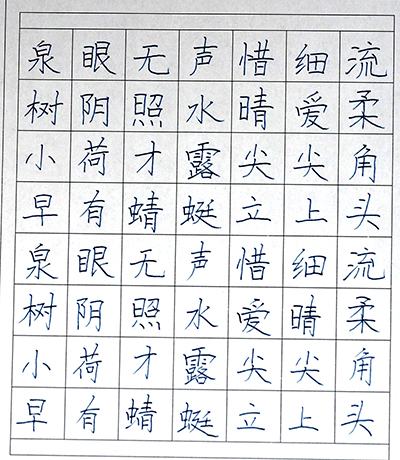 泉眼无声惜细流
树阴照水晴爱柔
小荷才露尖尖角
早有蜻蜓立上头
泉眼无声惜细流
树阴照水爱晴柔
小荷才露尖尖角
早有蜻蜓立上头